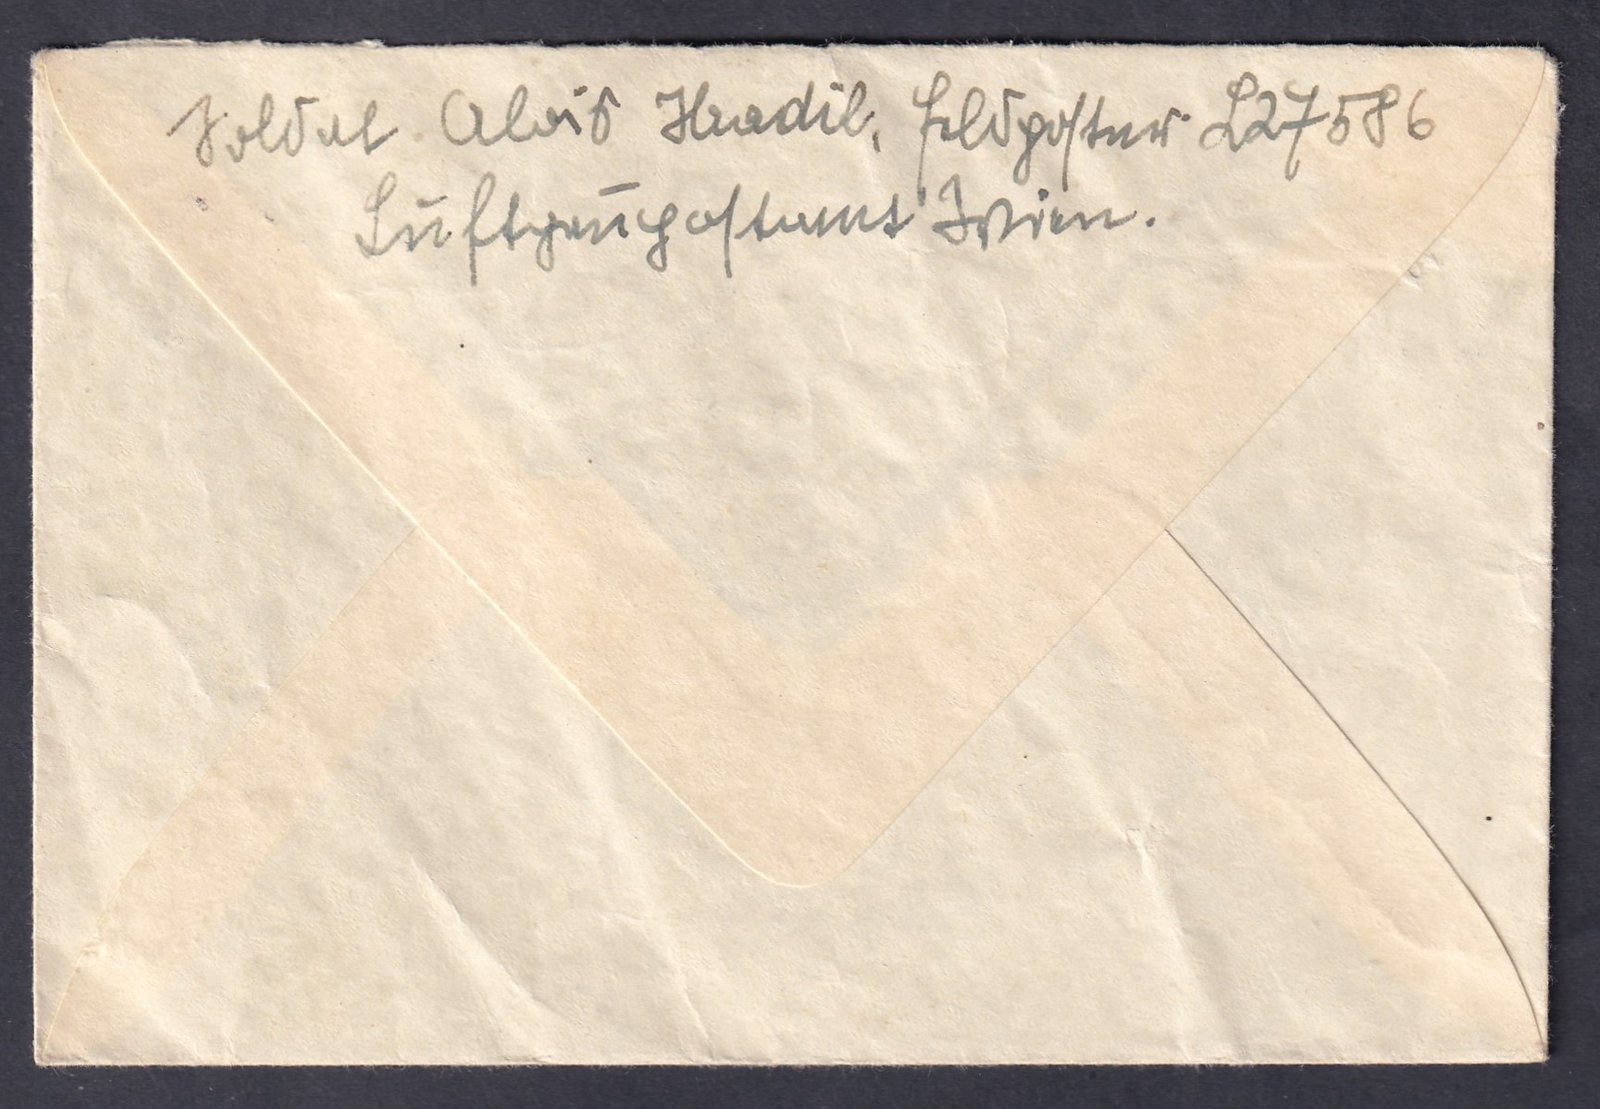 Soldat Alois Hradil, Feldpostnr L27586
Luftgaupostamt Wien.